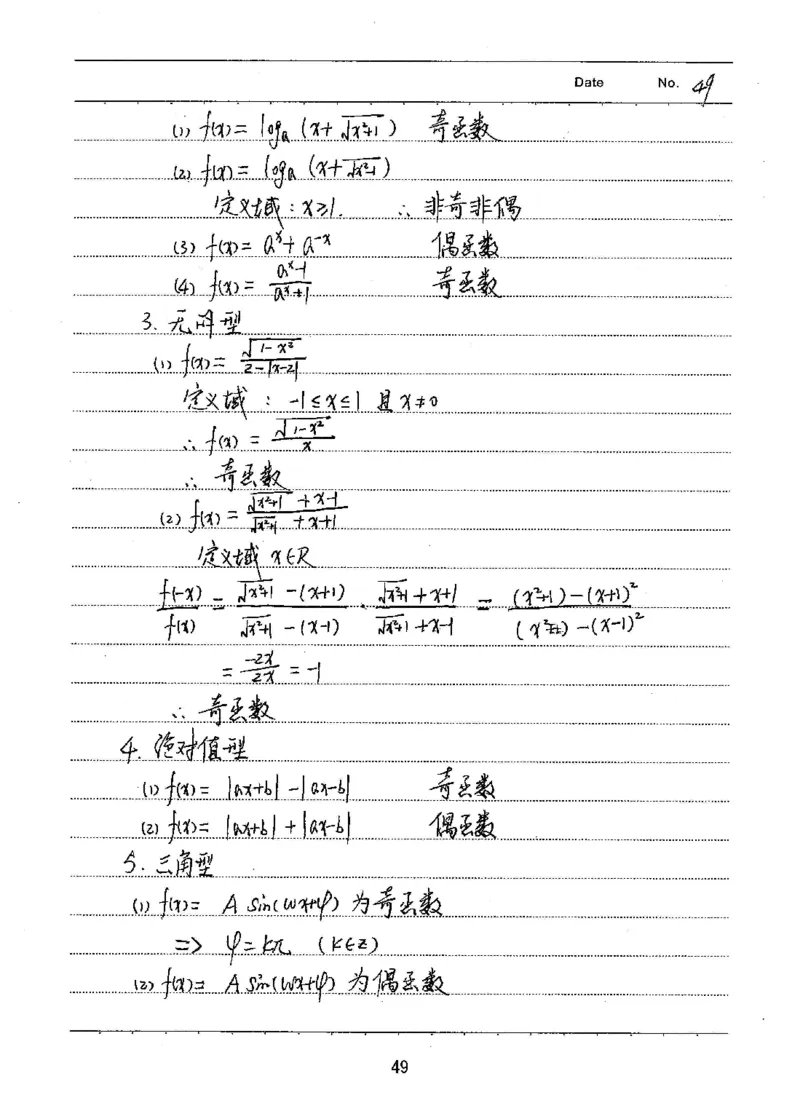 Date No. 49
(1) f(x) = logₐ (x+√(x²+1)) 奇函数
(2) f(x) = logₐ (x+√(x²-1))
定义域：x≥1. ∴ 非奇非偶
(3) f(x) = aˣ + a⁻ˣ 偶函数
(4) f(x) = (aˣ-1)/(aˣ+1) 奇函数
3. 无理型
(1) f(x) = √(1-x²)/(2-|x-2|)
定义域：-1≤x≤1 且 x≠0
∴ f(x) = √(1-x²)/x
∴ 奇函数
(2) f(x) = (√(x²+1) +x-1)/(√(x²+1) +x+1)
定义域 x∈R
f(-x)/f(x) = (√(x²+1) -(x+1))/(√(x²+1) -(x-1)) · (√(x²+1) +x+1)/(√(x²+1) +x-1) = ((x²+1)-(x+1)²)/((x²+1)-(x-1)²)
= -2x/2x = -1
∴ 奇函数
4. 绝对值型
(1) f(x) = |ax+b| - |ax-b| 奇函数
(2) f(x) = |ax+b| + |ax-b| 偶函数
5. 三角型
(1) f(x) = A sin(ωx+φ) 为奇函数
=> φ=kπ (k∈Z)
(2) f(x) = A sin(ωx+φ) 为偶函数
49